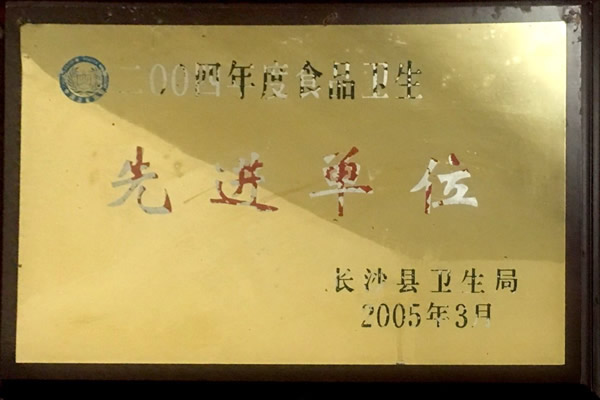 二00四年度食品卫生
先进单位
长沙县卫生局
2005年3月